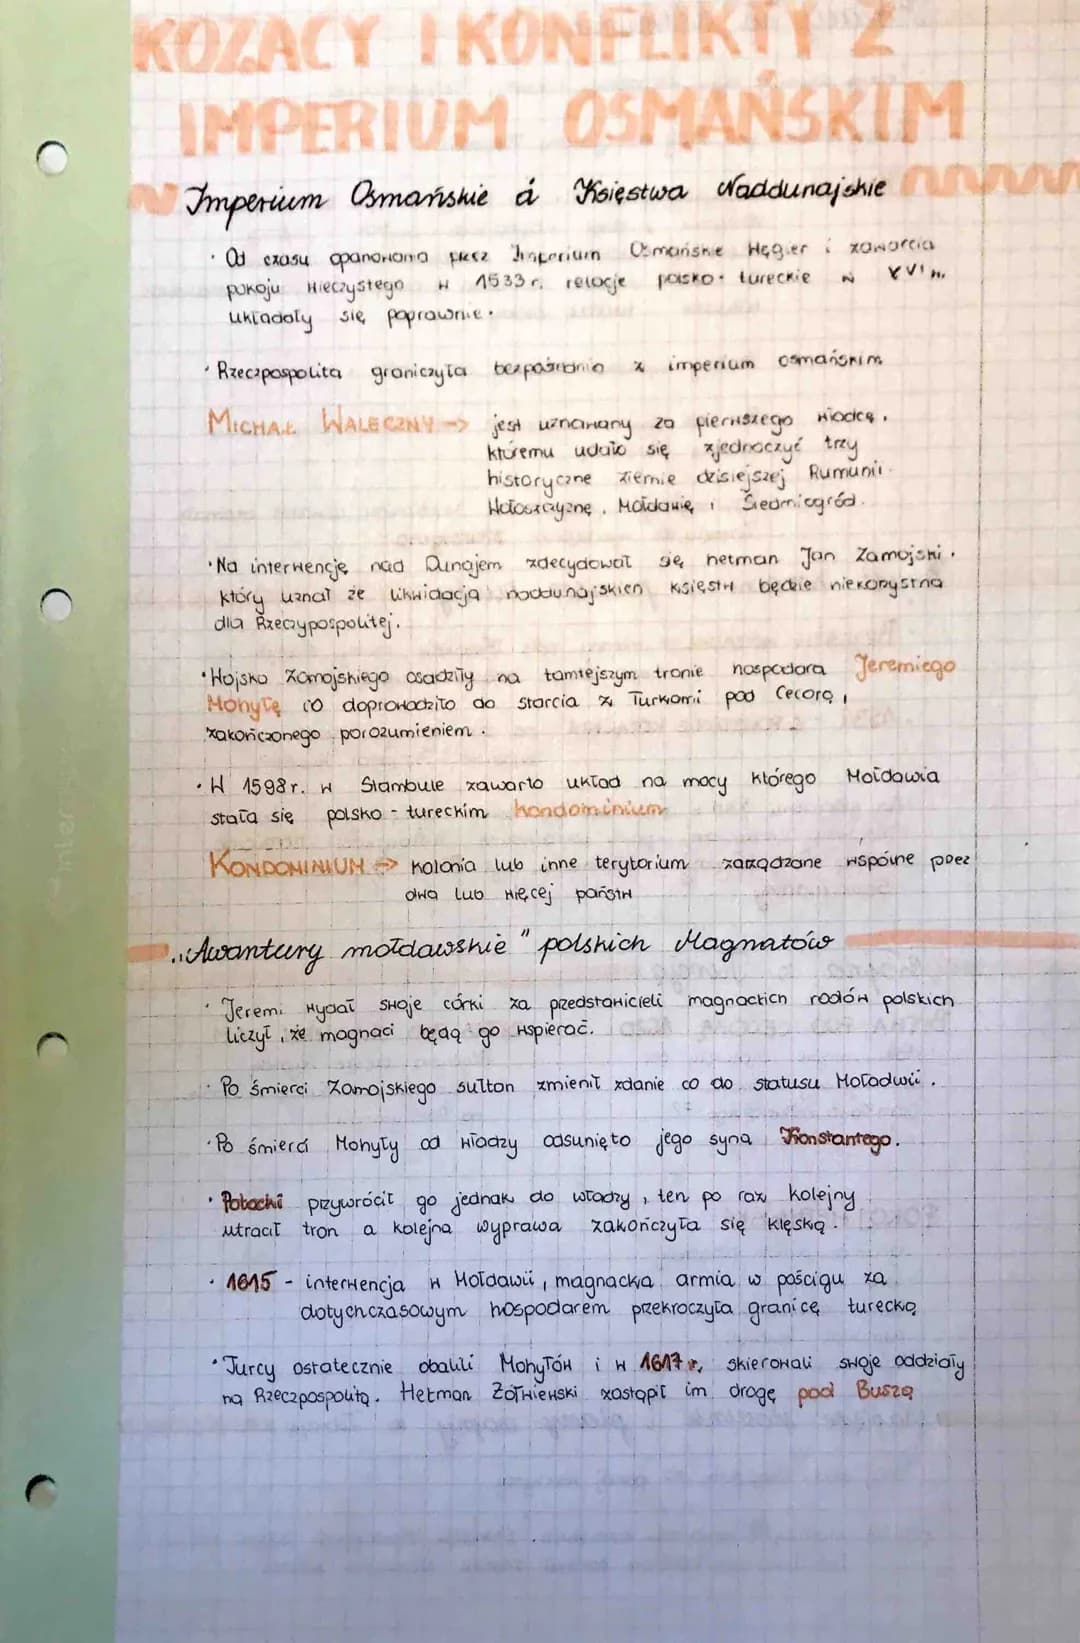 KOZACY I KONFLIKTY Z
IMPERIUM OSMAŃSKIM
Imperium Osmańskie á Księstwa Naddunajskie
· Od czasu opanowania przez Imperium Osmańskie Węgier i zawarcia
pokoju wieczystego w 1533 r. relacje polsko-tureckie w XVI w.
układały się poprawnie.
· Rzeczpospolita graniczyła bezpośrednio z imperium osmańskim
MICHAŁ WALECZNY → jest uznawany za pierwszego władcę,
któremu udało się zjednoczyć trzy
historyczne ziemie dzisiejszej Rumunii
Wołoszczyznę, Mołdawię i Siedmiogród.
· Na interwencję nad Dunajem zdecydował się hetman Jan Zamojski,
który uznał że likwidacja naddunajskich księstw będzie niekorystna
dla Rzeczypospolitej.
· Wojsko Zamojskiego osadziły na tamtejszym tronie hospodara Jeremiego
Mohyłę co doprowadziło do starcia z Turkami pod Cecorą,
zakończonego porozumieniem.
· W 1598r. w Stambule zawarto układ na mocy którego Mołdawia
stała się polsko-tureckim kondominium
KONDOMINIUM → kolonia lub inne terytorium zarządzane wspólne przez
dwa lub więcej państw
„Awantury mołdawskie" polskich Magnatów
· Jeremi wydał swoje córki za przedstawicieli magnackich rodów polskich
liczył, że magnaci będą go wspierać.
· Po śmierci Zamojskiego sułtan zmienił zdanie co do statusu Mołdawii.
· Po śmierci Mohyły od władzy odsunięto jego syna Konstantego.
· Potocki przywrócił go jednak do władzy, ten po raz kolejny
utracił tron a kolejna wyprawa zakończyła się klęską.
· 1615 - interwencja w Mołdawii, magnacka armia w pościgu za
dotychczasowym hospodarem przekroczyła granicę turecką
· Turcy ostatecznie obalili Mohyłów i w 1617 r. skierowali swoje oddziały
na Rzeczpospolitą. Hetman Żółkiewski zastąpił im drogę pod Buszą